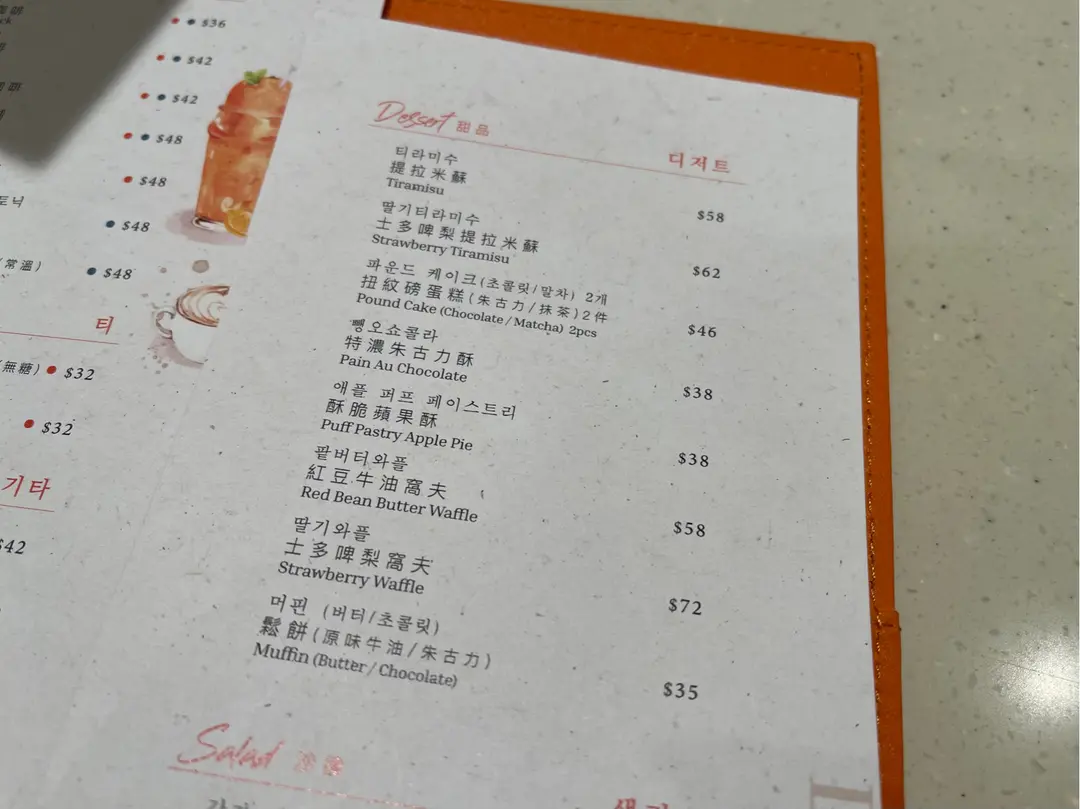 $36
$42
$42
$48
$48
토닉
$48
(常溫)
$48
티
(無糖) $32
$32
기타
$42
Dessert 甜品 디저트
티라미수
提拉米蘇
Tiramisu
$58
딸기티라미수
士多啤梨提拉米蘇
Strawberry Tiramisu
$62
파운드 케이크(초콜릿/말차) 2개
扭紋磅蛋糕(朱古力/抹茶)2件
Pound Cake (Chocolate / Matcha) 2pcs
$46
뺑오쇼콜라
特濃朱古力酥
Pain Au Chocolate
$38
애플 퍼프 페이스트리
酥脆蘋果酥
Puff Pastry Apple Pie
$38
팥버터와플
紅豆牛油窩夫
Red Bean Butter Waffle
$58
딸기와플
士多啤梨窩夫
Strawberry Waffle
$72
머핀 (버터/초콜릿)
鬆餅(原味牛油/朱古力)
Muffin (Butter / Chocolate)
$35
Salad